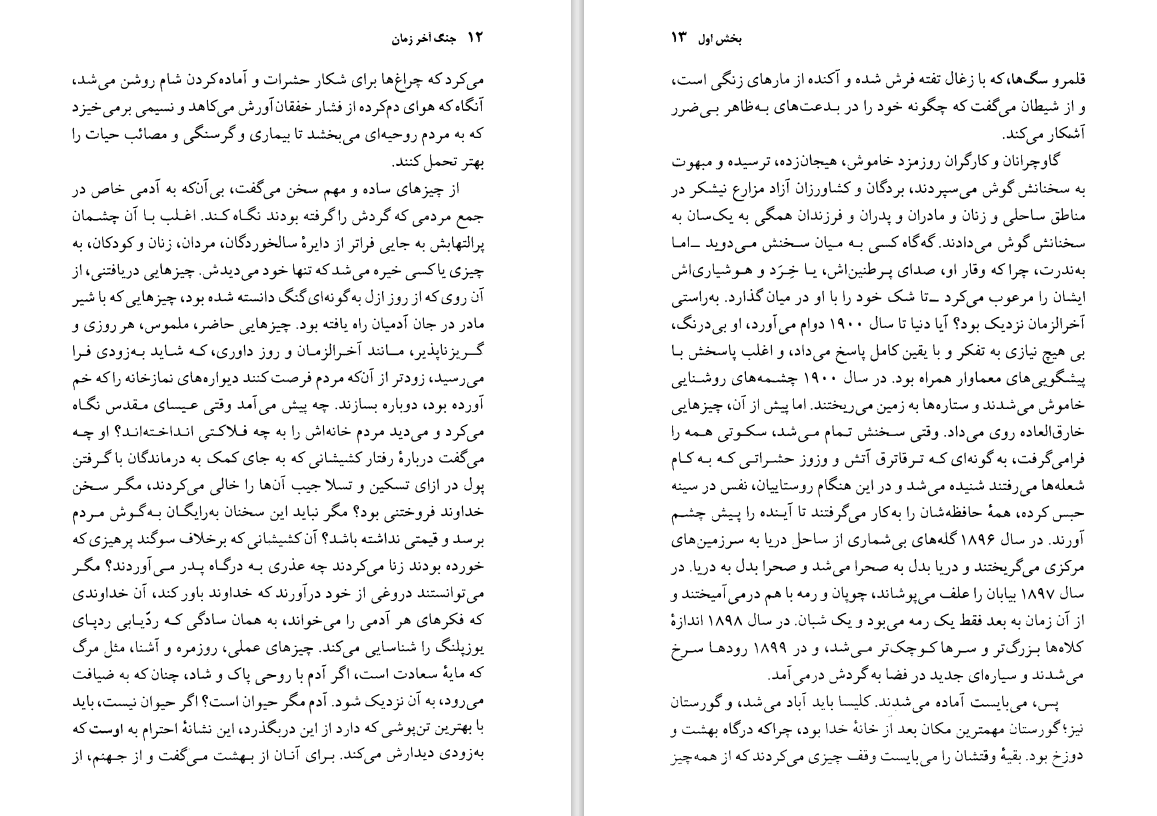 ۱۲ جنگ آخر زمان
می‌کرد که چراغ‌ها برای شکار حشرات و آماده‌کردن شام روشن می‌شد،
آنگاه که هوای دم‌کرده از فشار خفقان‌آورش می‌کاهد و نسیمی برمی‌خیزد
که به مردم روحیه‌ای می‌بخشد تا بیماری و گرسنگی و مصائب حیات را
بهتر تحمل کنند.
از چیزهای ساده و مهم سخن می‌گفت، بی‌آن‌که به آدمی خاص در
جمع مردمی که گردش را گرفته بودند نگاه کند. اغلب با آن چشمان
پرالتهابش به جایی فراتر از دایرهٔ سالخوردگان، مردان، زنان و کودکان، به
چیزی یا کسی خیره می‌شد که تنها خود می‌دیدش. چیزهایی دریافتنی، از
آن روی که از روز ازل به‌گونه‌ای گنگ دانسته شده بود، چیزهایی که با شیر
مادر در جان آدمیان راه یافته بود. چیزهایی حاضر، ملموس، هر روزی و
گریزناپذیر، مانند آخرالزمان و روز داوری، که شاید به‌زودی فرا
می‌رسید، زودتر از آن‌که مردم فرصت کنند دیواره‌های نمازخانه را که خم
آورده بود، دوباره بسازند. چه پیش می‌آمد وقتی عیسای مقدس نگاه
می‌کرد و می‌دید مردم خانه‌اش را به چه فلاکتی انداخته‌اند؟ او چه
می‌گفت دربارهٔ رفتار کشیشانی که به جای کمک به درماندگان با گرفتن
پول در ازای تسکین و تسلا جیب آن‌ها را خالی می‌کردند، مگر سخن
خداوند فروختنی بود؟ مگر نباید این سخنان به‌رایگان به‌گوش مردم
برسد و قیمتی نداشته باشد؟ آن کشیشانی که برخلاف سوگند پرهیزی که
خورده بودند زنا می‌کردند چه عذری به درگاه پدر می‌آوردند؟ مگر
می‌توانستند دروغی از خود درآورند که خداوند باور کند، آن خداوندی
که فکرهای هر آدمی را می‌خواند، به همان سادگی که ردّیابی ردپای
یوزپلنگ را شناسایی می‌کند. چیزهای عملی، روزمره و آشنا، مثل مرگ
که مایهٔ سعادت است، اگر آدم با روحی پاک و شاد، چنان که به ضیافت
می‌رود، به آن نزدیک شود. آدم مگر حیوان است؟ اگر حیوان نیست، باید
با بهترین تن‌پوشی که دارد از این دربگذرد، این نشانهٔ احترام به اوست که
به‌زودی دیدارش می‌کند. برای آنان از بهشت می‌گفت و از جهنم، از
بخش اول ۱۳
قلمرو سگ‌ها، که با زغال تفته فرش شده و آکنده از مارهای زنگی است،
و از شیطان می‌گفت که چگونه خود را در بدعت‌های به‌ظاهر بی‌ضرر
آشکار می‌کند.
گاوچرانان و کارگران روزمزد خاموش، هیجان‌زده، ترسیده و مبهوت
به سخنانش گوش می‌سپردند، بردگان و کشاورزان آزاد مزارع نیشکر در
مناطق ساحلی و زنان و مادران و پدران و فرزندان همگی به یک‌سان به
سخنانش گوش می‌دادند. گه‌گاه کسی به میان سخنش می‌دوید ــ اما
به‌ندرت، چرا که وقار او، صدای پرطنین‌اش، یا خِرَد و هوشیاری‌اش
ایشان را مرعوب می‌کرد ــ تا شک خود را با او در میان گذارد. به‌راستی
آخرالزمان نزدیک بود؟ آیا دنیا تا سال ۱۹۰۰ دوام می‌آورد، او بی‌درنگ،
بی هیچ نیازی به تفکر و با یقین کامل پاسخ می‌داد، و اغلب پاسخش با
پیشگویی‌های معماوار همراه بود. در سال ۱۹۰۰ چشمه‌های روشنایی
خاموش می‌شدند و ستاره‌ها به زمین می‌ریختند. اما پیش از آن، چیزهایی
خارق‌العاده روی می‌داد. وقتی سخنش تمام می‌شد، سکوتی همه را
فرامی‌گرفت، به گونه‌ای که ترق‌اترق آتش و وزوز حشراتی که به کام
شعله‌ها می‌رفتند شنیده می‌شد و در این هنگام روستاییان، نفس در سینه
حبس کرده، همهٔ حافظه‌شان را به‌کار می‌گرفتند تا آینده را پیش چشم
آورند. در سال ۱۸۹۶ گله‌های بی‌شماری از ساحل دریا به سرزمین‌های
مرکزی می‌گریختند و دریا بدل به صحرا می‌شد و صحرا بدل به دریا. در
سال ۱۸۹۷ بیابان را علف می‌پوشاند، چوپان و رمه با هم درمی‌آمیختند و
از آن زمان به بعد فقط یک رمه می‌بود و یک شبان. در سال ۱۸۹۸ اندازهٔ
کلاه‌ها بزرگ‌تر و سرها کوچک‌تر می‌شد، و در ۱۸۹۹ رودها سرخ
می‌شدند و سیاره‌ای جدید در فضا به گردش درمی‌آمد.
پس، می‌بایست آماده می‌شدند. کلیسا باید آباد می‌شد، و گورستان
نیز؛ گورستان مهمترین مکان بعد از خانهٔ خدا بود، چراکه درگاه بهشت و
دوزخ بود. بقیهٔ وقتشان را می‌بایست وقف چیزی می‌کردند که از همه‌چیز